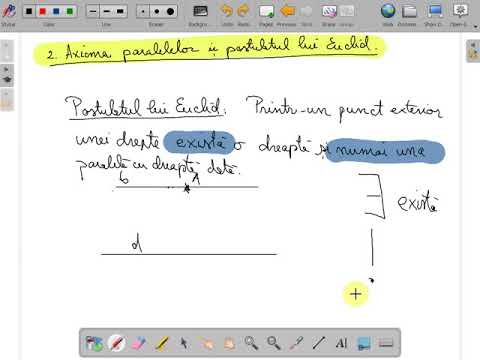 Stylus
Eraser
Background
Undo
Redo
Page
Previous
Next
Erase
2. Axioma paralelelor și postulatul lui Euclid.
Postulatul lui Euclid: Printr-un punct exterior
unei drepte există o dreaptă și numai una
paralelă cu dreapta dată.
b A
∃ există
d